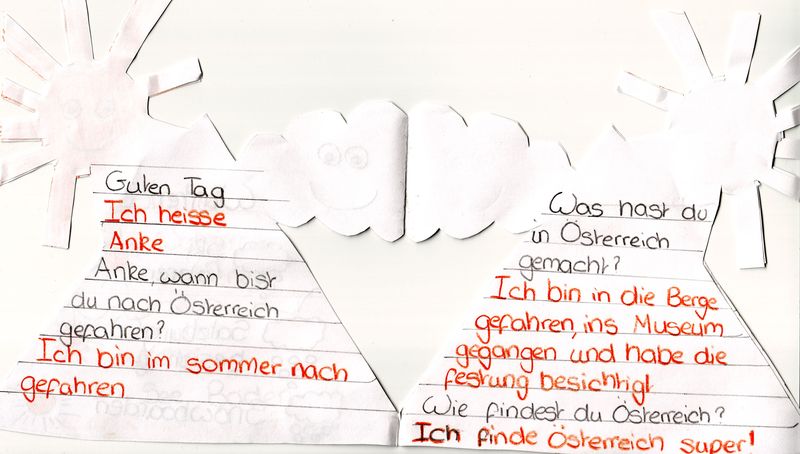 Guten Tag
Ich heisse
Anke
Anke, wann bist
du nach Österreich
gefahren?
Ich bin im sommer nach
gefahren
Was hast du
in Österreich
gemacht?
Ich bin in die Berge
gefahren, ins Museum
gegangen und habe die
festung besichtigt
Wie findest du Österreich?
Ich finde Österreich super!